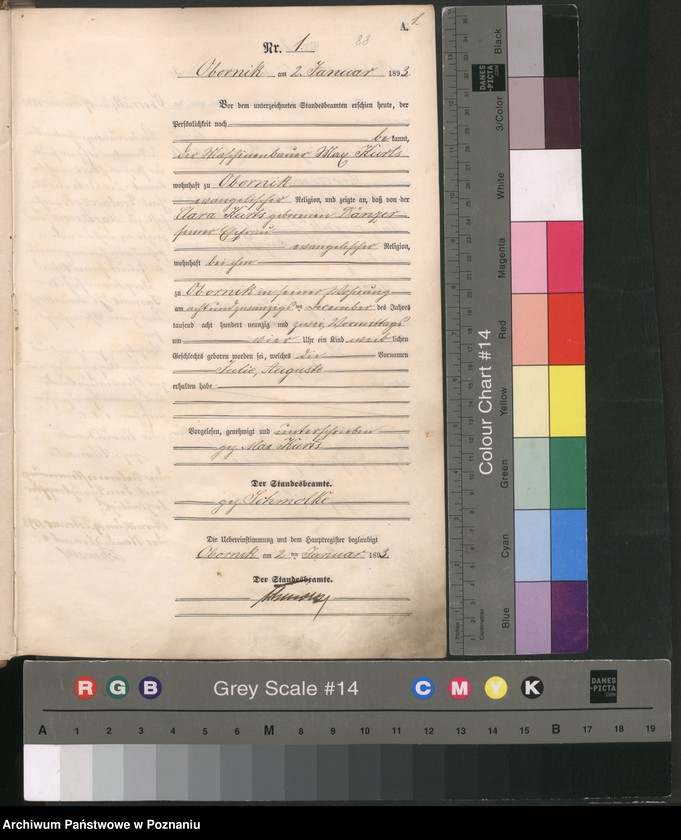 A.
1.
Nr. 1.
88
Obornik am 2. Januar 1893.
Vor dem unterzeichneten Standesbeamten erschien heute, der
Persönlichkeit nach
bekannt,
der Maschinenbauer Max Kurts
wohnhaft zu Obornik
evangelischer Religion, und zeigte an, daß von der
Clara Kurts geborenen Dänzer
seiner Ehefrau
evangelischer Religion,
wohnhaft bei ihm
zu Obornik in seiner Wohnung
am achtundzwanzigsten December des Jahres
tausend acht hundert neunzig und zwei, Vormittags
um vier Uhr ein Kind weiblichen
Geschlechts geboren worden sei, welches die Vornamen
Julie, Auguste
erhalten habe
Vorgelesen, genehmigt und unterschrieben
gez. Max Kurts
Der Standesbeamte.
gez. Schmolke
Die Uebereinstimmung mit dem Hauptregister beglaubigt
Obornik am 2ten Januar 1893.
Der Standesbeamte.
DANES
-PICTA
.COM
Black
3/Color
White
Magenta
Red
Yellow
Green
Cyan
Blue
Colour Chart #14
Inches
Centimetres
R G B Grey Scale #14 C M Y K
DANES
-PICTA
.COM
A 1 2 3 4 5 6 M 8 9 10 11 12 13 14 15 B 17 18 19
Archiwum Państwowe w Poznaniu